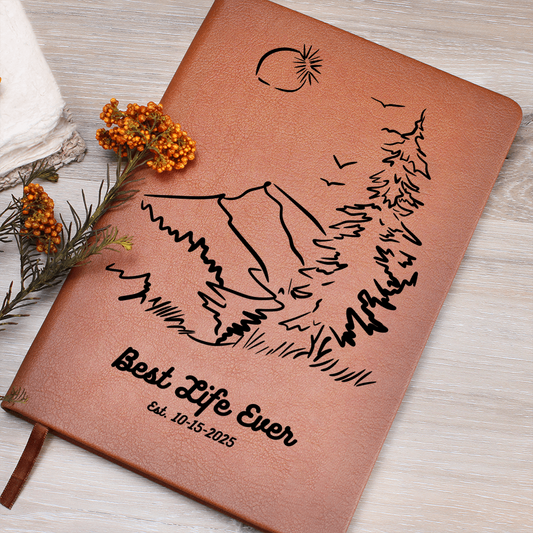 Best Life Ever
Est. 10-15-2025